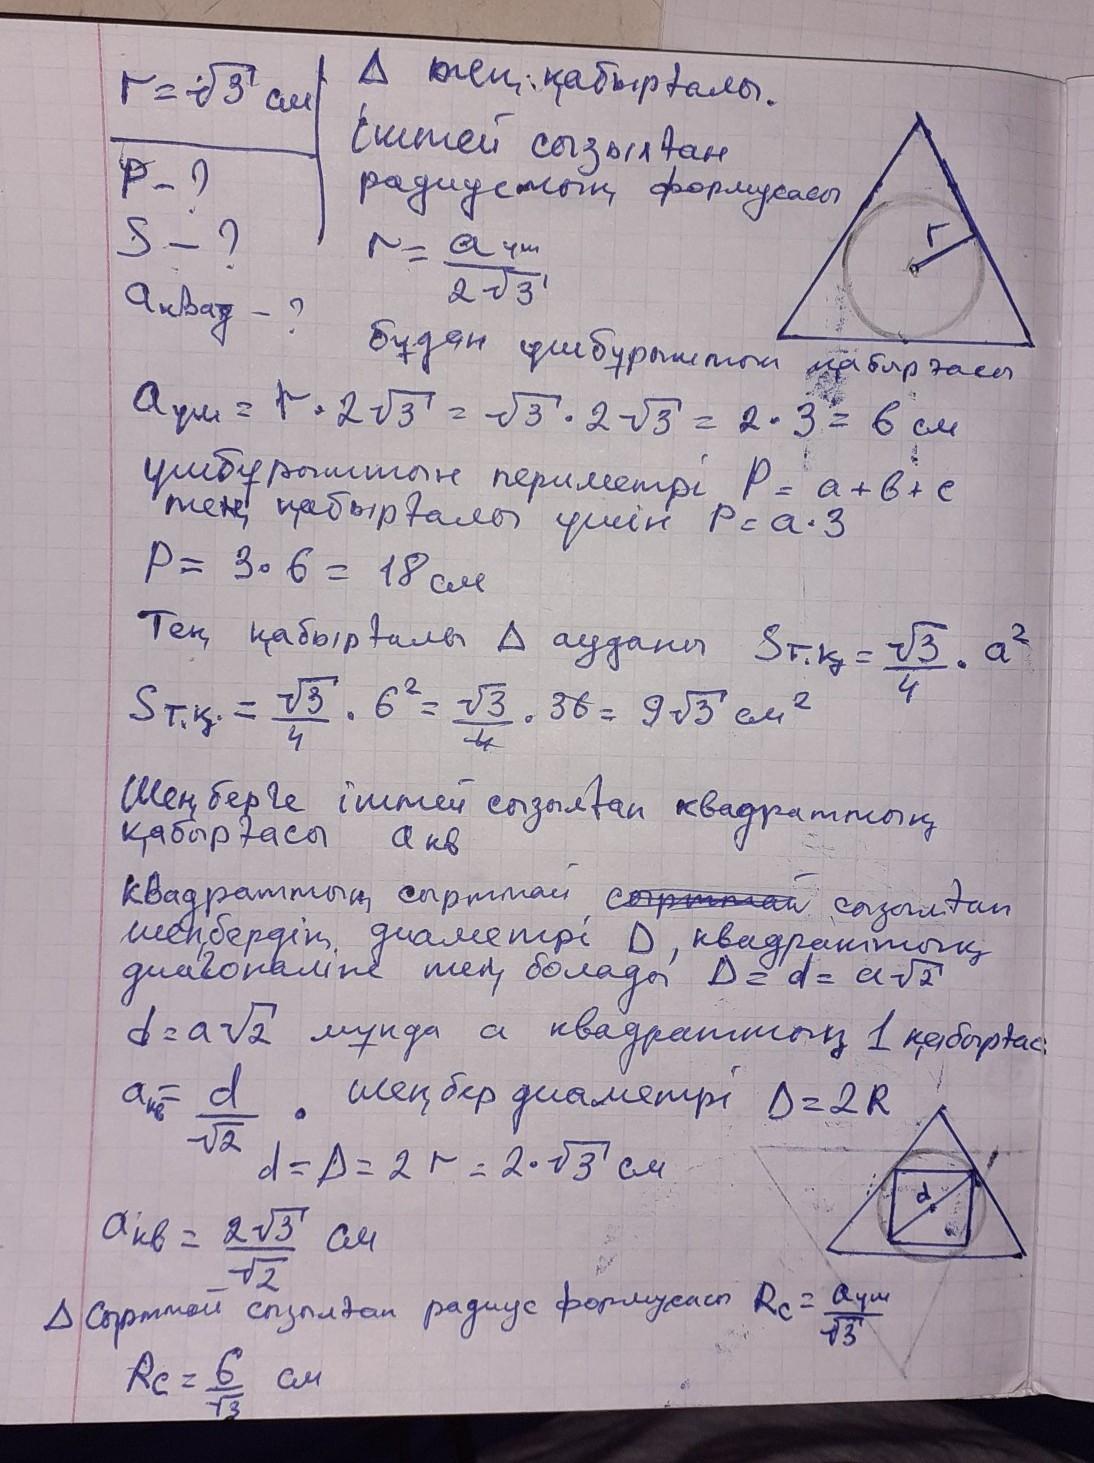 r = √3 см
P - ?
S - ?
a квад - ?
Δ тең қабырғалы.
Іштей сызылған
радиустың формуласы
r = a үш / 2√3
r
бұдан үшбұрыштың қабырғасы
a үш = r · 2√3 = √3 · 2√3 = 2 · 3 = 6 см
үшбұрыштың периметрі P = a + b + c
тең қабырғалы үшін P = a · 3
P = 3 · 6 = 18 см
Тең қабырғалы Δ ауданы S т.қ = √3/4 · a²
S т.қ. = √3/4 · 6² = √3/4 · 36 = 9√3 см²
Шеңберге іштей сызылған квадраттың
қабырғасы a кв
квадраттың сырттай сырттай сызылған
шеңбердің диаметрі D, квадраттың
диагоналіне тең болады D = d = a√2
d = a√2 мұнда a квадраттың 1 қабырғас
a кв = d/√2 . шеңбер диаметрі D = 2R
d = D = 2r = 2·√3 см
d
a кв = 2√3/√2 см
Δ сырттай сызылған радиус формуласы Rc = a үш/√3
Rc = 6/√3 см